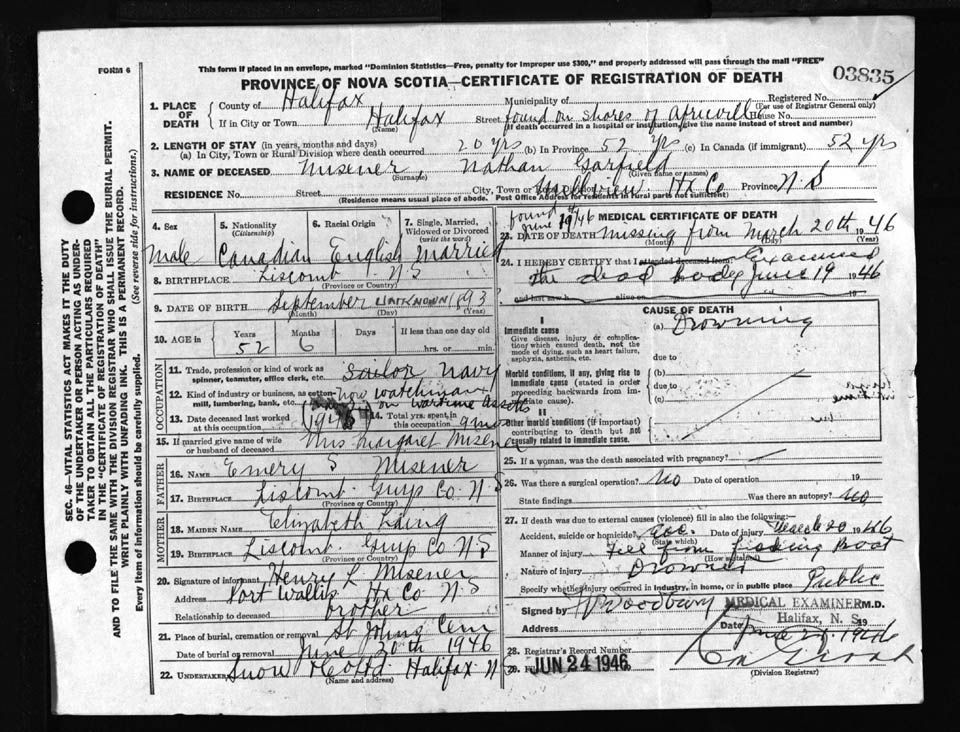 FORM 6
This form if placed in an envelope, marked "Dominion Statistics—Free, penalty for improper use $300," and properly addressed will pass through the mail "FREE"
PROVINCE OF NOVA SCOTIA—CERTIFICATE OF REGISTRATION OF DEATH
03835
SEC. 46—VITAL STATISTICS ACT MAKES IT THE DUTY
OF THE UNDERTAKER OR PERSON ACTING AS UNDER-
TAKER TO OBTAIN ALL THE PARTICULARS REQUIRED
IN THE "CERTIFICATE OF REGISTRATION OF DEATH"
AND TO FILE THE SAME WITH THE DIVISION REGISTRAR WHO SHALL ISSUE THE BURIAL PERMIT.
WRITE PLAINLY WITH UNFADING INK. THIS IS A PERMANENT RECORD.
Every item of information should be carefully supplied. (See reverse side for instructions.)
1. PLACE OF DEATH
County of Halifax Municipality of Registered No.
(For use of Registrar General only)
If in City or Town Halifax Street found on shores of Africville House No.
(Name) (If death occurred in a hospital or institution, give the name instead of street and number)
2. LENGTH OF STAY (in years, months and days)
(a) In City, Town or Rural Division where death occurred 20 yrs (b) In Province 52 yrs (c) In Canada (if immigrant) 52 yrs
3. NAME OF DECEASED Misener, Nathan Garfield
(Surname) (Given name or names)
RESIDENCE No. Street City, Town or Millview Hx Co Province N S
(Residence means usual place of abode. Post Office Address for residents in rural parts not sufficient)
4. Sex Male
5. Nationality (Citizenship) Canadian
6. Racial Origin English
7. Single, Married, Widowed or Divorced (write the word) Married
8. BIRTHPLACE Liscomb N S
(Province or Country)
9. DATE OF BIRTH September Unknown 1893
(Month) (Day) (Year)
10. AGE in Years 52 Months 6 Days If less than one day old
hrs. or min.
OCCUPATION
11. Trade, profession or kind of work as
spinner, teamster, office clerk, etc. Sailor Navy
12. Kind of industry or business, as cotton-
mill, lumbering, bank, etc. now watchman
on wartime assets
13. Date deceased last worked
at this occupation (1946)
14. Total yrs. spent in
this occupation 9 mos
15. If married give name of wife
or husband of deceased Mrs Margaret Misener
FATHER
16. NAME Emery S Misener
17. BIRTHPLACE Liscomb Guys Co N S
(Province or Country)
MOTHER
18. MAIDEN NAME Elizabeth Laing
19. BIRTHPLACE Liscomb Guys Co N S
(Province or Country)
20. Signature of informant Henry L Misener
Address Port Wallis Hx Co N S
Relationship to deceased brother
21. Place of burial, cremation or removal St Johns Cem
Date of burial or removal June 20th 1946
22. UNDERTAKER Snow & Co Ltd Halifax N
(Name and address)
found June 19/46 MEDICAL CERTIFICATE OF DEATH
23. DATE OF DEATH missing from March 20th 1946
(Month) (Day) (Year)
24. I HEREBY CERTIFY that I attended deceased from Examined
the dead body June 19 1946
and last saw h alive on 19
CAUSE OF DEATH
I
Immediate cause
Give disease, injury or complica-
tion which caused death, not the
mode of dying, such as heart failure,
asphyxia, asthenia, etc.
(a) Drowning
due to
Morbid conditions, if any, giving rise to
immediate cause (stated in order
proceeding backwards from im-
mediate cause).
(b)
due to
II
Other morbid conditions (if important)
contributing to death but not
causally related to immediate cause.
25. If a woman, was the death associated with pregnancy?
26. Was there a surgical operation? No Date of operation 19
State findings Was there an autopsy? No
27. If death was due to external causes (violence) fill in also the following:—
Accident, suicide or homicide? Acc. Date of injury March 20 1946
(State which)
Manner of injury Fell from fishing Boat
(How sustained)
Nature of injury Drowned
Specify whether injury occurred in industry, in home, or in public place Public
Signed by Woodbury MEDICAL EXAMINER M.D.
Address Halifax, N. S.
Date June 1946
28. Registrar's Record Number
29. JUN 24 1946
(Division Registrar)